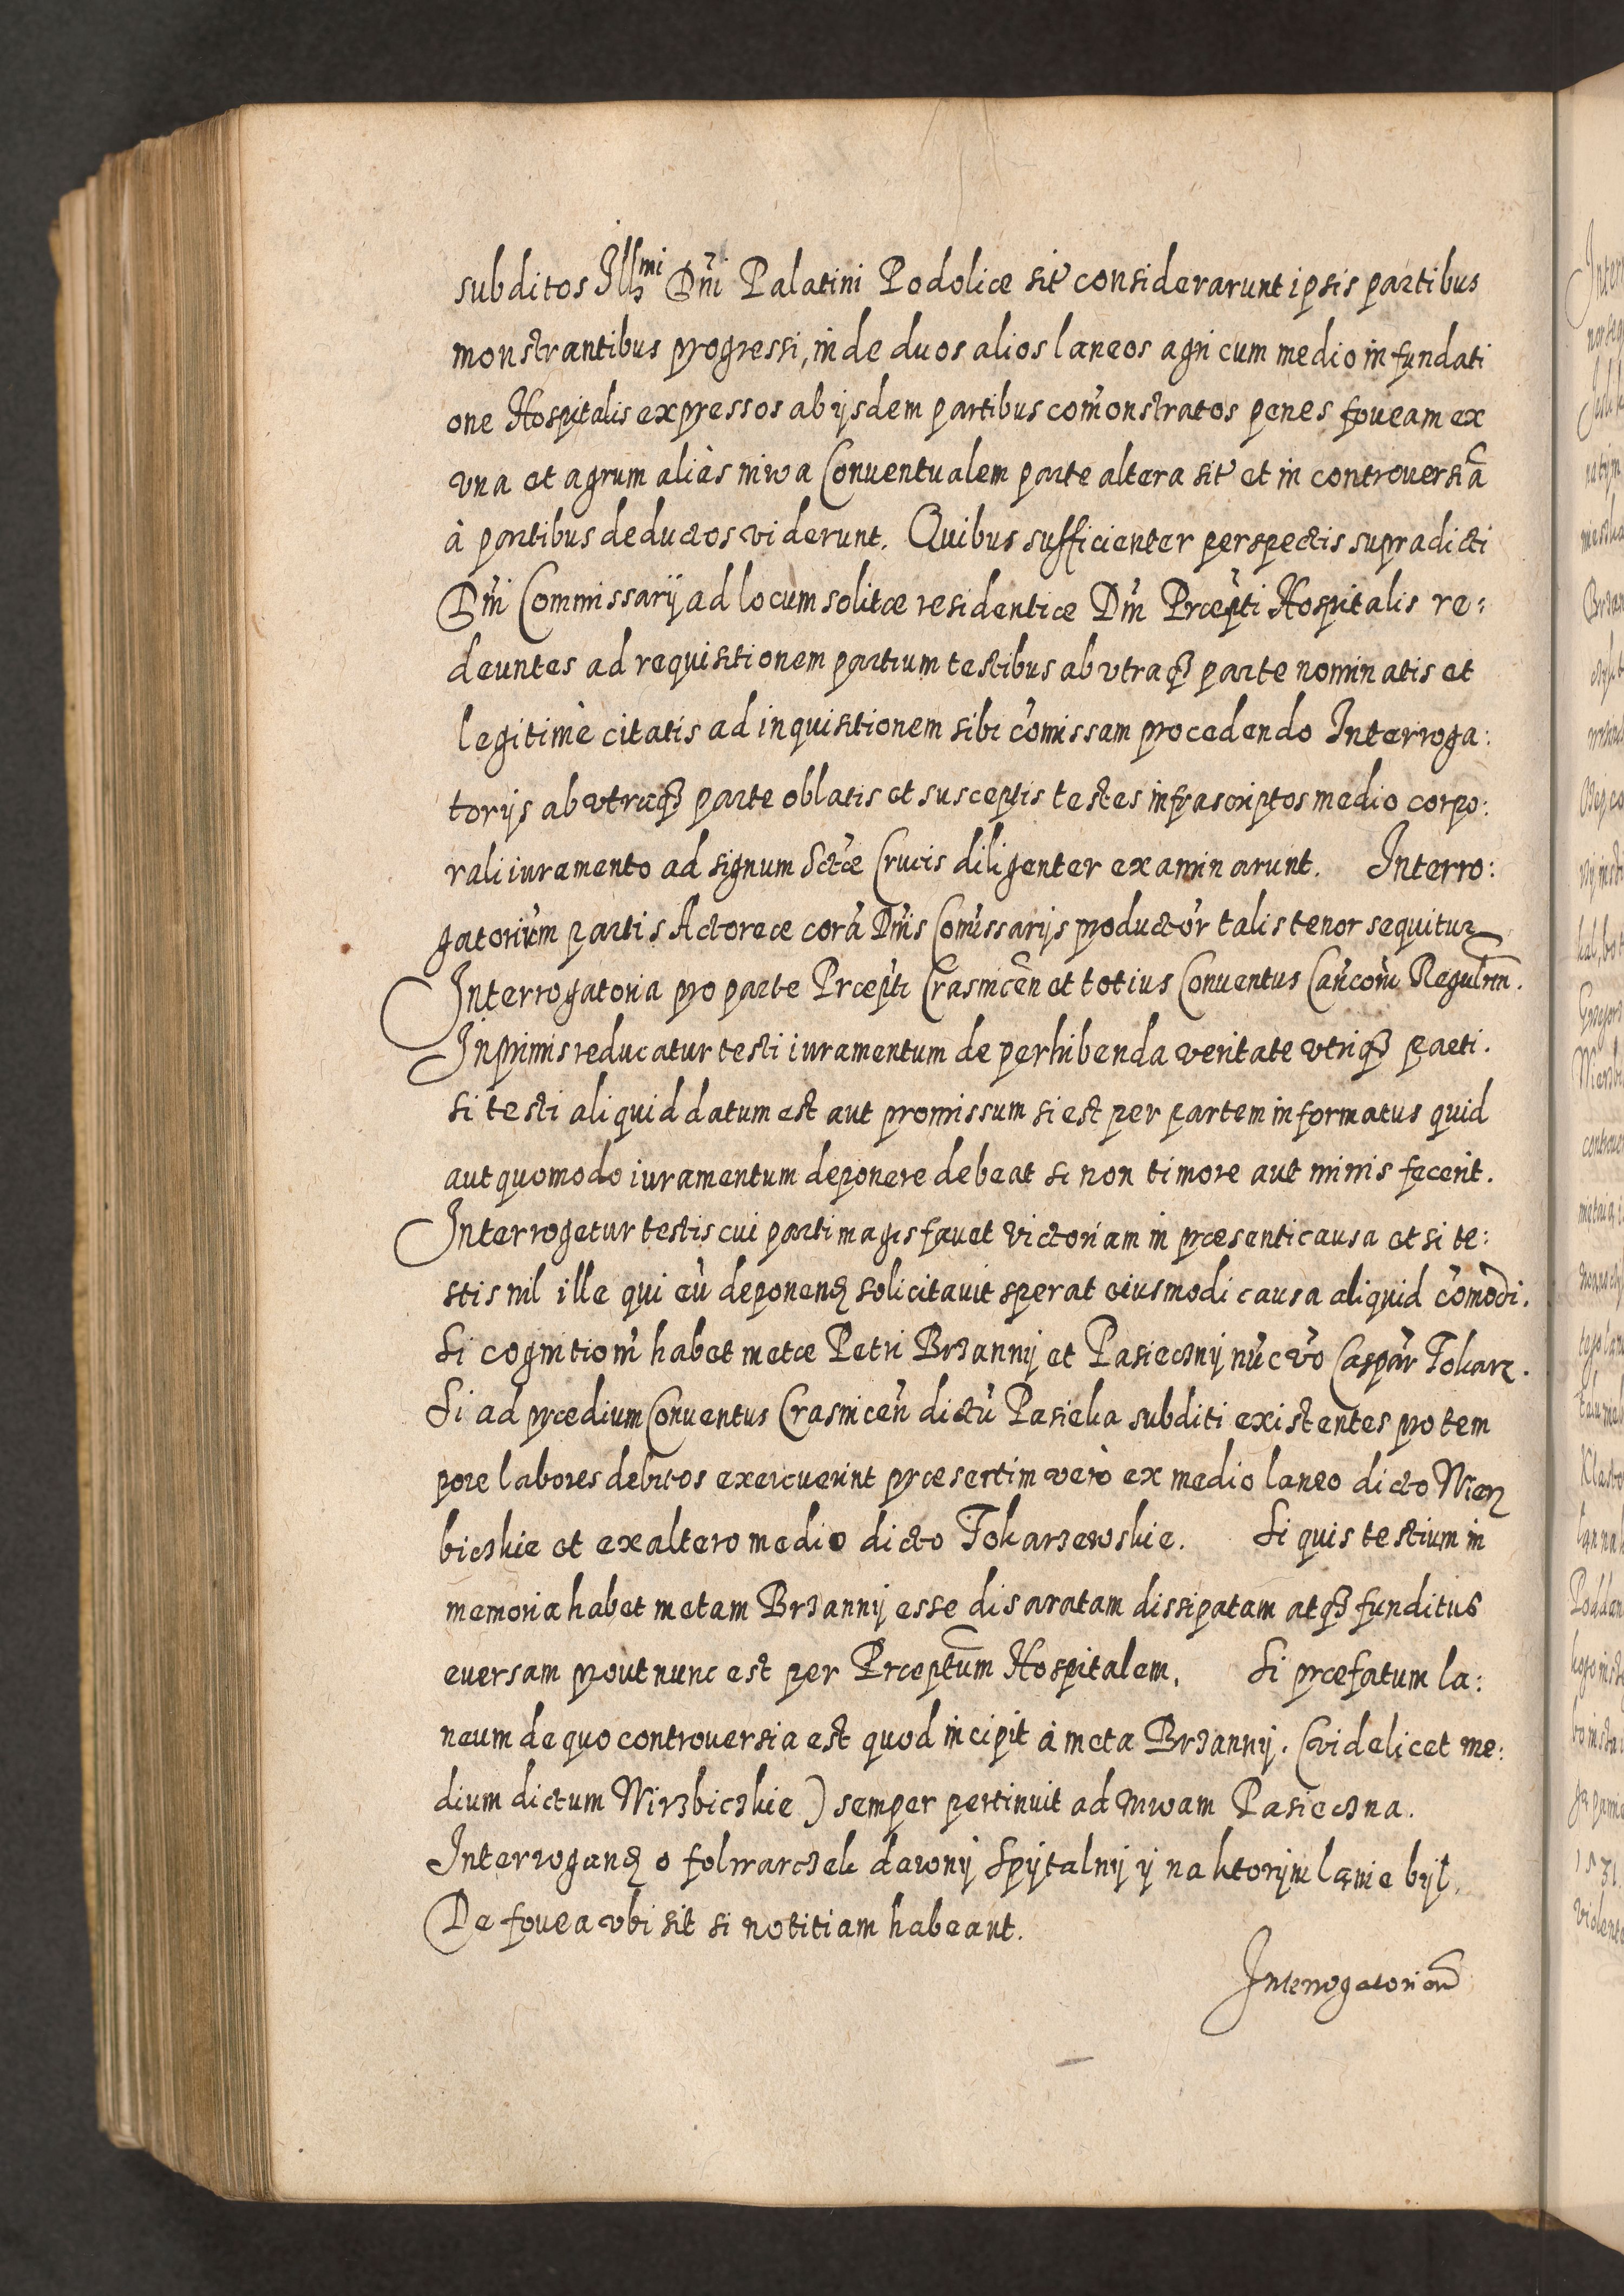 subditos Illmi Dni Palatini Podoliæ sit considerarunt ipsis partibus
monstrantibus progressi, inde duos alios laneos agri cum medio in fundati
one Hospitalis expressos ab ijsdem partibus com̃onstratos penes foueam ex
vna et agrum aliàs niwa Conuentualem parte altera sit et in controuersia
à partibus deductos viderunt. Quibus sufficienter perspectis supradicti
Dni Commissarij ad locum solitæ residentiæ Dni Præpti Hospitalis re:
deuntes ad requisitionem partium testibus ab vtraq3 parte nominatis et
legitimè citatis ad inquisitionem sibi com̃issam procedendo Interroga:
torijs ab vtraq3 parte oblatis et susceptis testes infrascriptos medio corpo:
rali iuramento ad signum Sctæ Crucis diligenter examinarunt. Interro:
gatorium partis Actoreæ corã Dnis Com̃issarijs productor talis tenor sequitur
Interrogatoria pro parte Præpti Crasnicen et totius Conuentus Cancorũ Regulrm.
Inprimis reducatur testi iuramentum de perhibenda veritate vtriq3 parti.
si testi aliquid datum est aut promissum si est per partem informatus quid
aut quomodo iuramentum deponere debeat si non timore aut minis fecerit.
Interrogetur testis cui parti magis fauet victoriam in præsenti causa et si te:
stis nil ille qui eũ deponend solicitauit sperat eiusmodi causa aliquid com̃odi.
Si cognitiom̃ habet metæ Petri Brzanny et Pasieczny nũc vo Caspar Tokarz.
Si ad prædium Conuentus Crasnicen dictũ Pasieka subditi existentes pro tem
pore labores debitos exercuerint præsertim verò ex medio laneo dicto Wierz
biczkie et ex altero medio dicto Tokarzewskie. Si quis testium in
memoria habet metam Brzanny esse disaratam dissipatam atq3 funditus
euersam prout nunc est per Præptum Hospitalem. Si præfatum la:
neum de quo controuersia est quod incipit à meta Brzanny. (videlicet me:
dium dictum Wirzbiczkie) semper pertinuit ad niwam Pasieczna.
Interrogand o folwarczek dawny Spytalny y na ktorym lanie byl.
De fouea vbi sit si notitiam habeant.
Interrogatorium